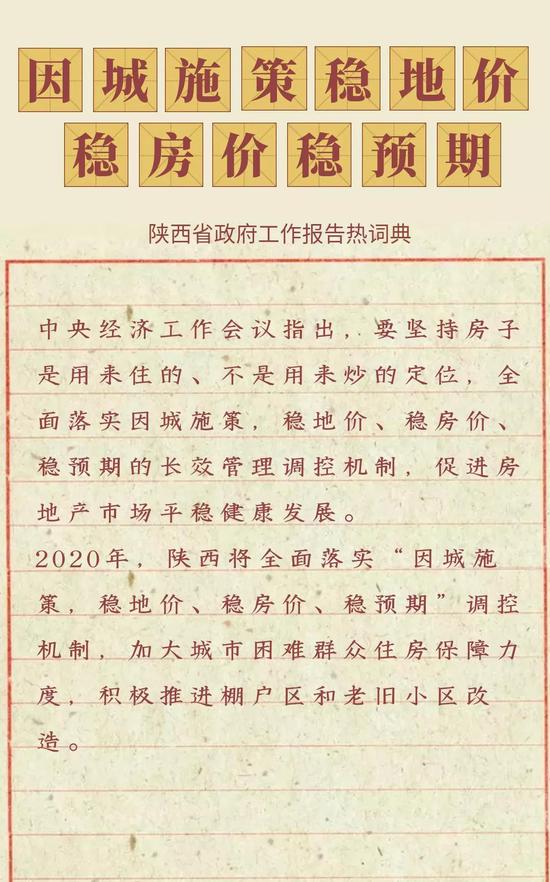 因城施策稳地价
稳房价稳预期
陕西省政府工作报告热词典
中央经济工作会议指出，要坚持房子
是用来住的、不是用来炒的定位，全
面落实因城施策，稳地价、稳房价、
稳预期的长效管理调控机制，促进房
地产市场平稳健康发展。
2020年，陕西将全面落实“因城施
策，稳地价、稳房价、稳预期”调控
机制，加大城市困难群众住房保障力
度，积极推进棚户区和老旧小区改
造。